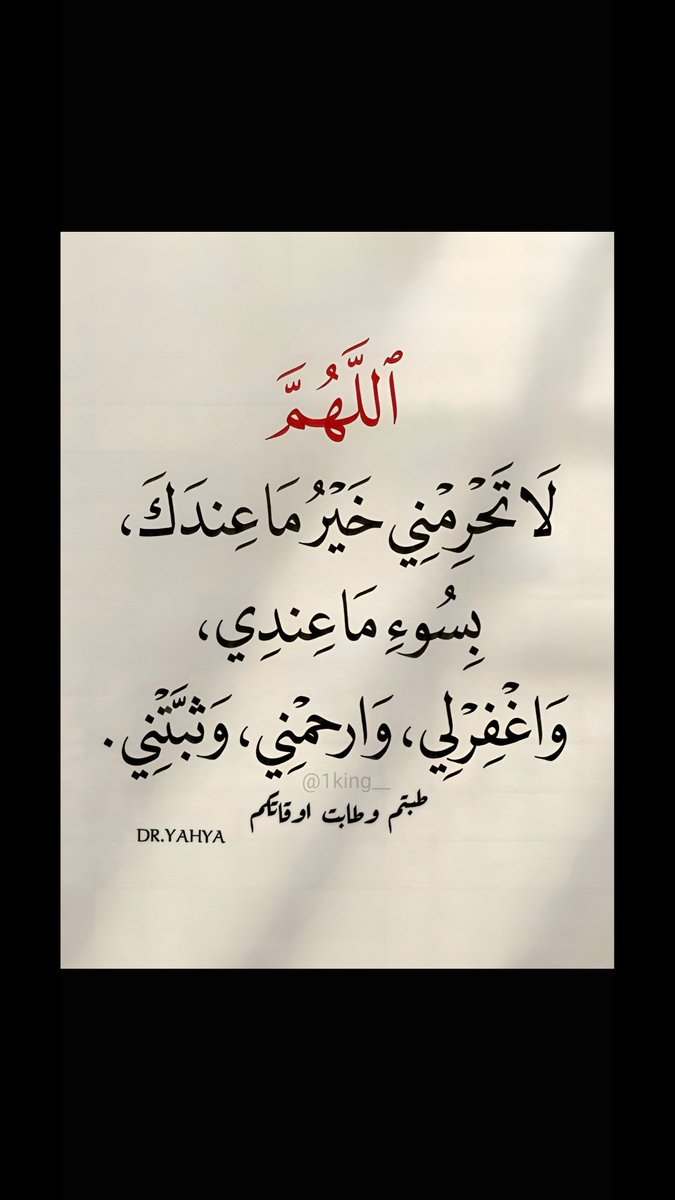 ٱللَّهُمَّ
لَا تَحْرِمْنِي خَيْرُ مَا عِندَكَ،
بِسُوءِ مَا عِندِي،
وَاغْفِرْلِي، وَارحمْنِي، وَثبَّتْنِي.
@1king__
طبتم وطابت اوقاتكم
DR.YAHYA